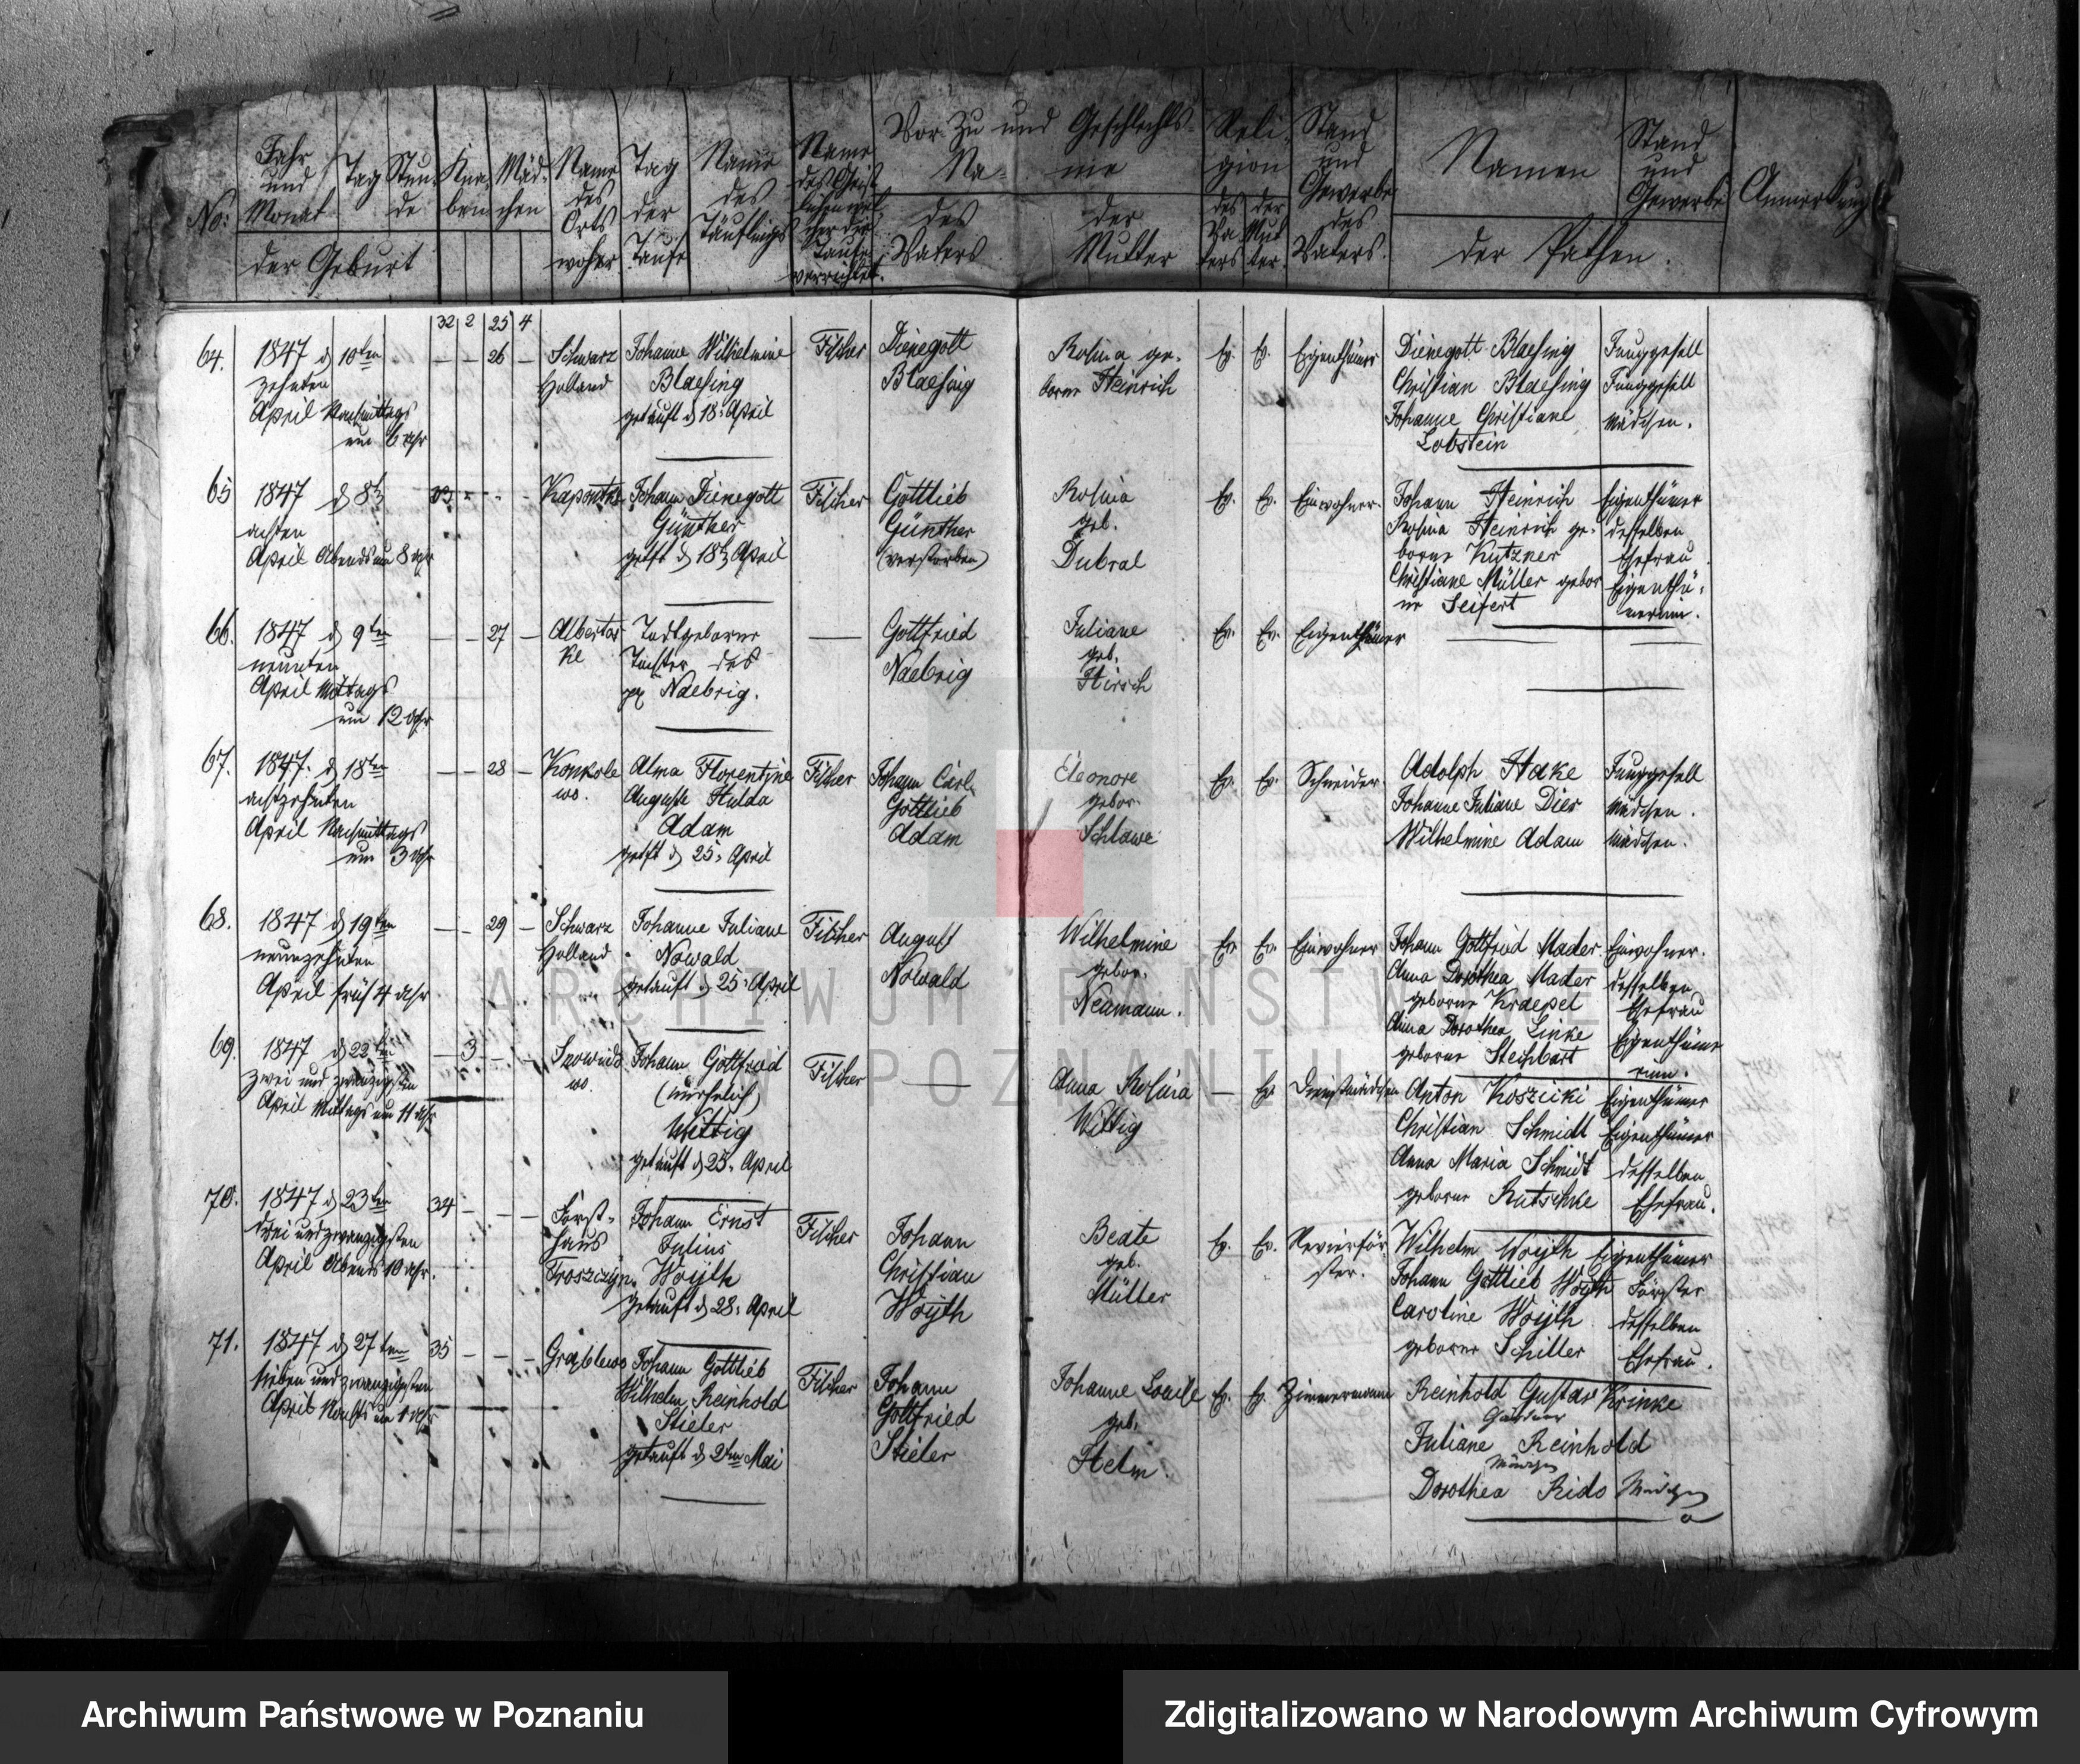 No:
Jahr und Monat
Tag
Stunde
der Geburt
Knaben
Mädchen
Name des Orts woher
Tag der Taufe
Name des Täuflings
Name des Geistlichen welcher die Taufe verrichtet.
Vor- Zu und Geschlechts-Name
des Vaters
der Mutter
Religion
des Vaters
der Mutter
Stand und Gewerbe des Vaters.
Namen
Stand und Gewerbe
der Pathen.
Anmerkung
32 2 25 4
64. 1847 d 10ten — — 26 — Schwarz
zehnten Holland
April Nachmittags
um 6 Uhr
Johanne Wilhelmine
Blaesing
getauft d 18. April
Fischer
Dienegott
Blaesing
Rosina ge-
borne Heinrich
Ev. Ev. Eigenthümer
Dienegott Blaesing Junggesell
Christian Blaesing Junggesell
Johanne Christiane Mädchen.
Lobstein
65 1847 d 8t 33
achten
April Abends um 8 Uhr
Johann Dienegott
Günther
getft d 18t April
Fischer
Gottlieb
Günther
(verstorben)
Rosina
geb.
Dubral
Ev. Ev. Einwohner.
Johann Heinrich Eigenthümer
Rosina Heinrich ge- desselben
borne Kutzner Ehefrau
Christiane Müller gebor Eigenthü-
ne Seifert nerinn.
66. 1847 d 9ten — — 27 — Albertos
neunten ke
April Mittags
um 12 Uhr
Todtgeborne
Tochter des
Naebrig.
—
Gottfried
Naebrig
Juliane
geb.
Hirsch
Ev. Ev. Eigenthümer
67. 1847. d 18ten — — 28 — Konkole
achtzehnten wo.
April Nachmittags
um 3 Uhr
Alma Florentine
Auguste Hulda
Adam
getft d 25. April
Fischer
Johann Carl
Gottlieb
Adam
Eleonore
gebor.
Schlawe
Ev. Ev. Schneider.
Adolph Hake Junggesell
Johanne Juliane Dier Mädchen.
Wilhelmine Adam Mädchen.
68. 1847 d 19ten — — 29 — Schwarz
neunzehnten Holland
April früh 4 Uhr
Johanne Juliane
Nowald
getauft d 25. April
Fischer
August
Nowald
Wilhelmine
gebor.
Neumann.
Ev. Ev. Einwohner
Johann Gottfried Mader Einwohner.
Anna Dorothea Mader desselben
geborne Kraepel Ehefrau
Anna Dorothea Linke Eigenthüme
geborne Steinbart rinn.
69. 1847 d 22ten — 3 — —
zwei und zwanzigsten wo.
April Mittags um 11 Uhr
Johann Gottfried
(unehelich)
Wittig
getauft d 25. April
Fischer
—
Anna Rosina
Wittig
— Ev. Dienstmädchen
Anton Koszicki Eigenthümer
Christian Schmidt Eigenthümer
Anna Maria Schmidt desselben
geborne Kutschke Ehefrau.
70. 1847 d 23ten 34 — — — Forst-
drei und zwanzigsten haus
April Abends 10 Uhr.
Johann Ernst
Julius
Woyth
getauft d 28. April
Fischer
Johann
Christian
Woyth
Beate
geb.
Müller
Ev. Ev. Revierför
ster.
Wilhelm Woyth Eigenthümer
Johann Gottlieb Woyth Förster
Caroline Woyth desselben
geborne Schiller Ehefrau.
71. 1847 d 27ten 35 — — — Grablewo
sieben und zwanzigsten
April Nachts um 1 Uhr
Johann Gottlieb
Wilhelm Reinhold
Stieler
getauft d 2ten Mai
Fischer
Johann
Gottfried
Stieler
Johanne Louise
geb.
Helm.
Ev. Ev. Zimmermann
Reinhold Gustav Krinke
Juliane Reinhold
Mädchen
Dorothea Rido Mädchen
ARCHIWUM PAŃSTWOWE
W POZNANIU
Archiwum Państwowe w Poznaniu
Zdigitalizowano w Narodowym Archiwum Cyfrowym